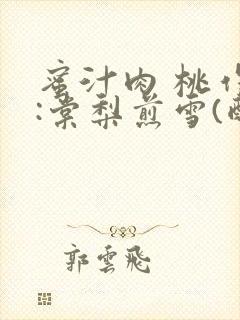 蜜汁肉桃作
:棠梨煎雪(
郭雲飛